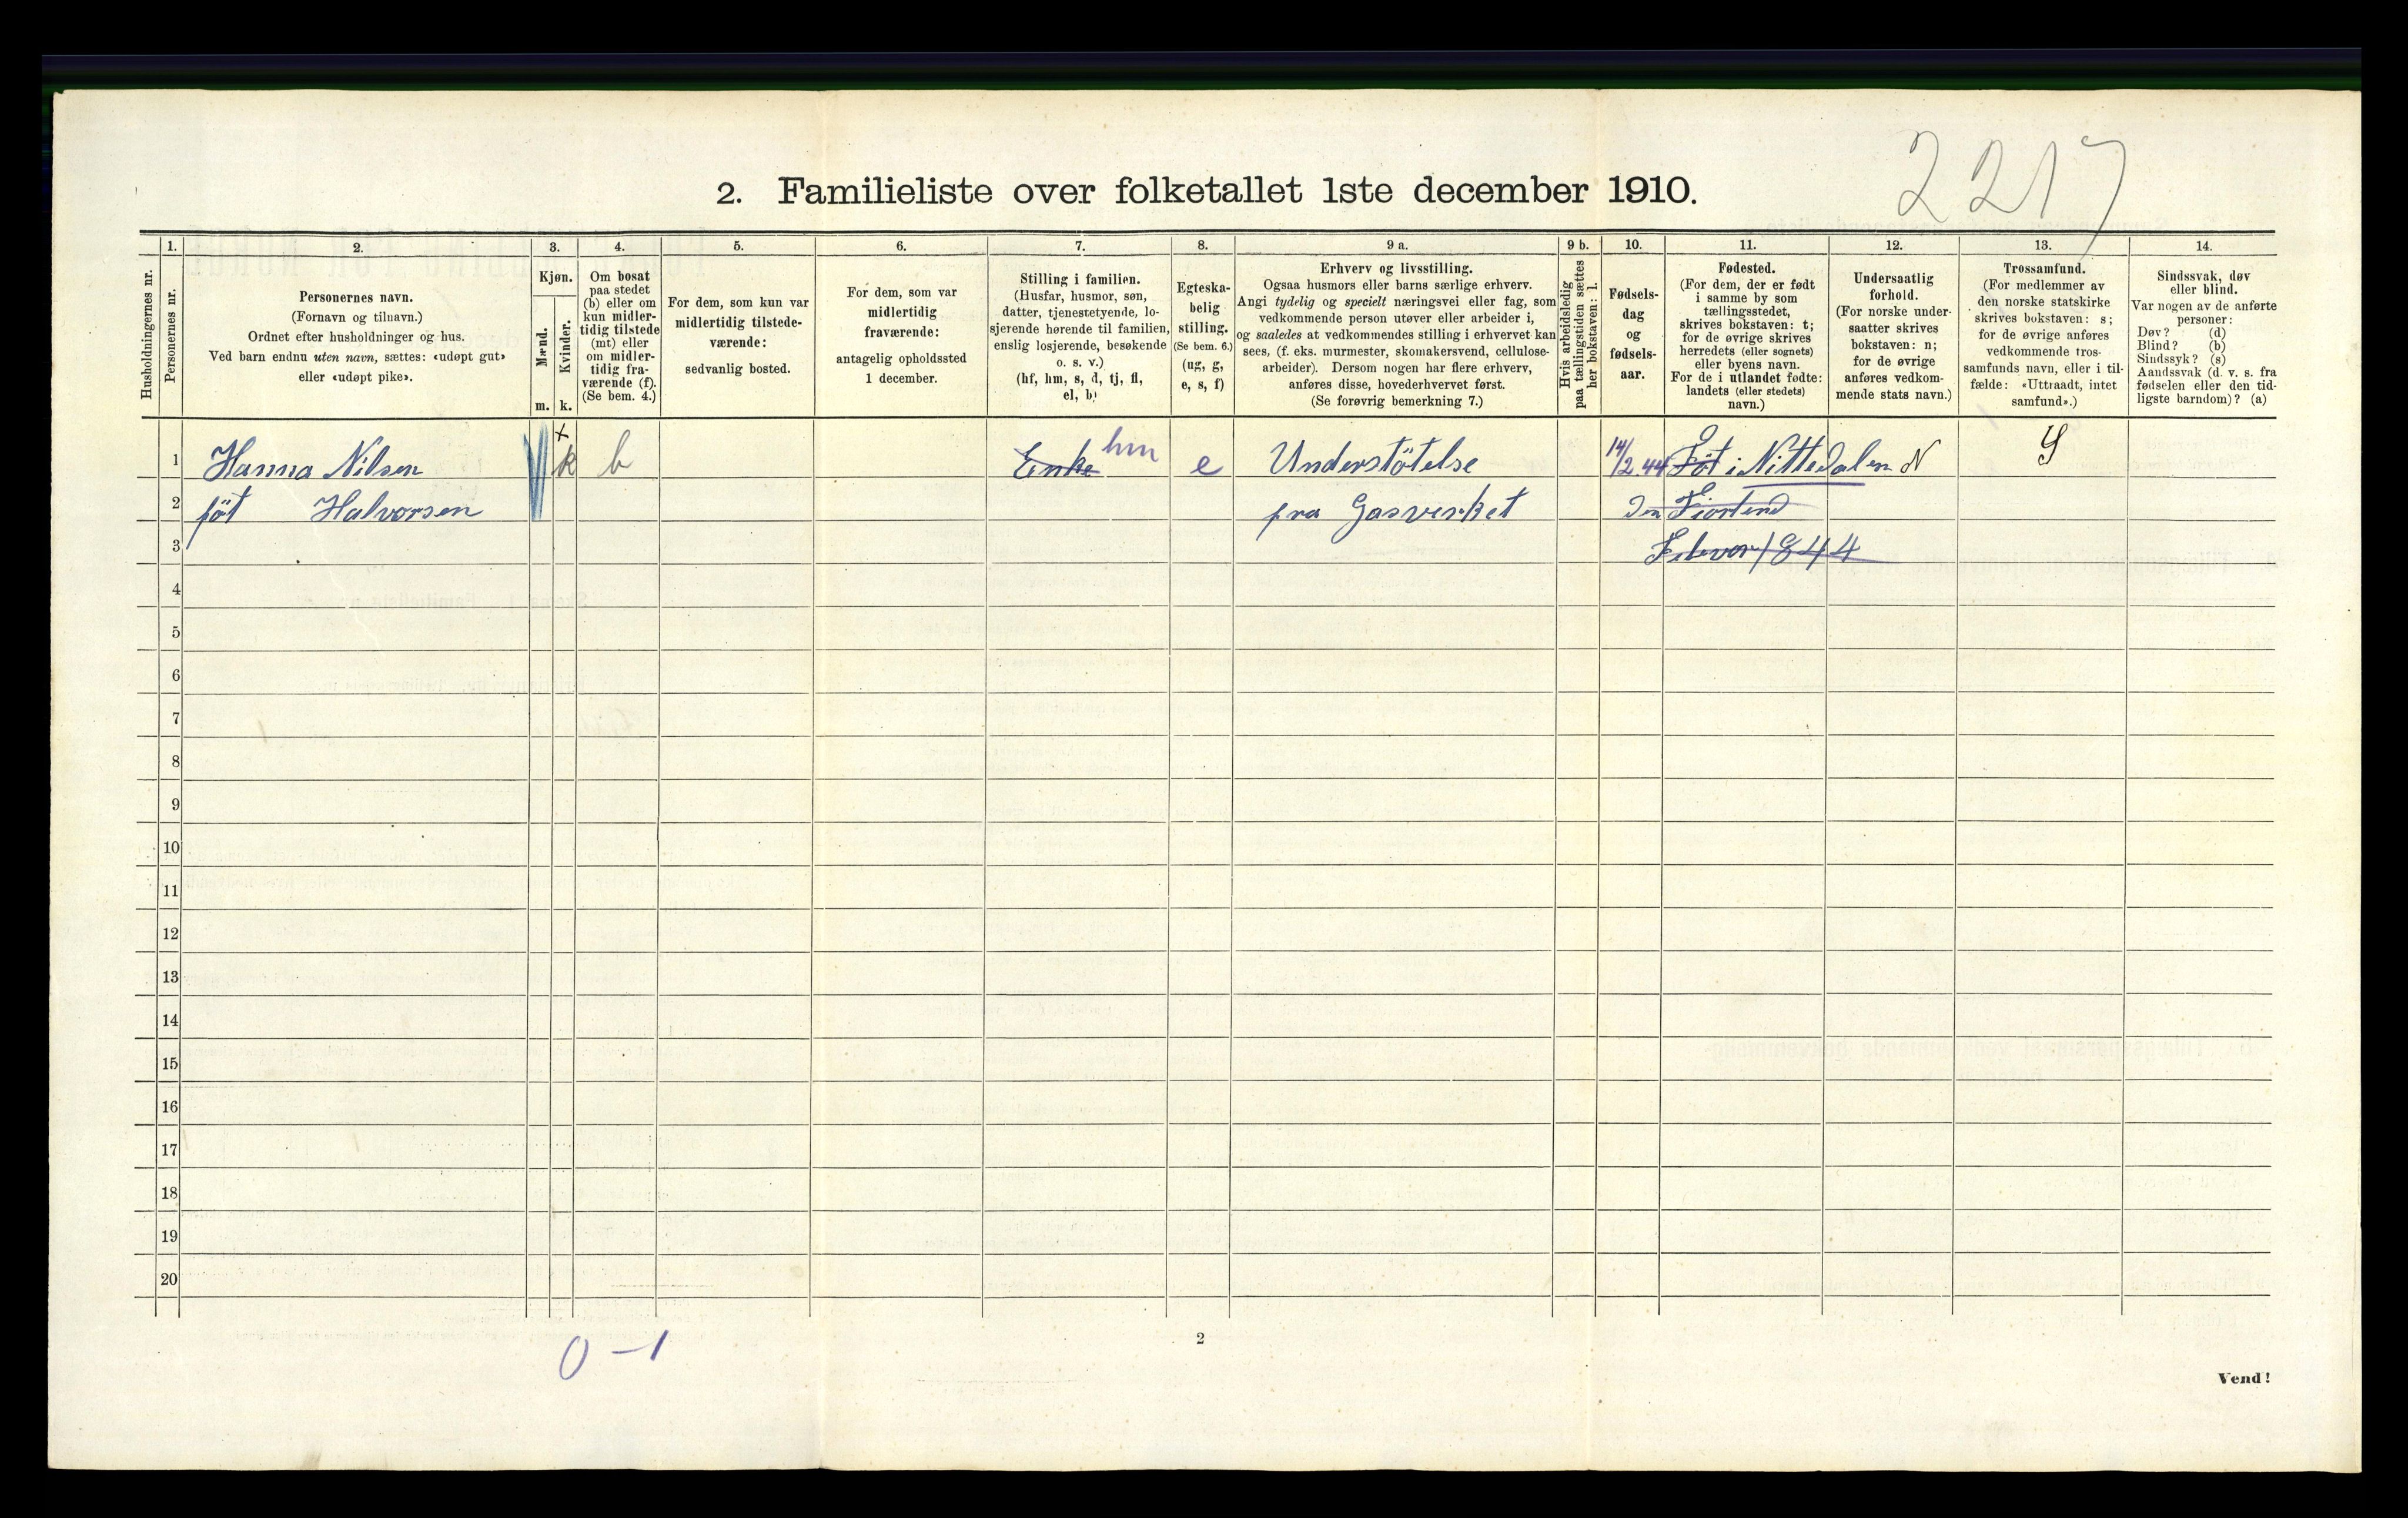 2217
2. Familieliste over folketallet 1ste december 1910.
Husholdningernes nr.
1.
Personernes nr.
2.
Personernes navn.
(Fornavn og tilnavn.)
Ordnet efter husholdninger og hus.
Ved barn endnu uten navn, sættes: «udøpt gut»
eller «udøpt pike».
3.
Kjøn.
Mænd.
m.
Kvinder.
k.
4.
Om bosat
paa stedet
(b) eller om
kun midler-
tidig tilstede
(mt) eller
om midler-
tidig fra-
værende (f).
(Se bem. 4.)
5.
For dem, som kun var
midlertidig tilstede-
værende:
sedvanlig bosted.
6.
For dem, som var
midlertidig
fraværende:
antagelig opholdssted
1 december.
7.
Stilling i familien.
(Husfar, husmor, søn,
datter, tjenestetyende, lo-
sjerende hørende til familien,
enslig losjerende, besøkende
o. s. v.)
(hf, hm, s, d, tj, fl,
el, b)
8.
Egteska-
belig
stilling.
(Se bem. 6.)
(ug, g,
e, s, f)
9 a.
Erhverv og livsstilling.
Ogsaa husmors eller barns særlige erhverv.
Angi tydelig og specielt næringsvei eller fag, som
vedkommende person utøver eller arbeider i,
og saaledes at vedkommendes stilling i erhvervet kan
sees, (f. eks. murmester, skomakersvend, cellulose-
arbeider). Dersom nogen har flere erhverv,
anføres disse, hovederhvervet først.
(Se forøvrig bemerkning 7.)
9 b.
Hvis arbeidsledig
paa tællingstiden sættes
her bokstaven: l.
10.
Fødsels-
dag
og
fødsels-
aar.
11.
Fødested.
(For dem, der er født
i samme by som
tællingsstedet,
skrives bokstaven: t;
for de øvrige skrives
herredets (eller sognets)
eller byens navn.
For de i utlandet fødte:
landets (eller stedets)
navn.)
12.
Undersaatlig
forhold.
(For norske under-
saatter skrives
bokstaven: n;
for de øvrige
anføres vedkom-
mende stats navn.)
13.
Trossamfund.
(For medlemmer av
den norske statskirke
skrives bokstaven: s;
for de øvrige anføres
vedkommende tros-
samfunds navn, eller i til-
fælde: «Uttraadt, intet
samfund».)
14.
Sindssvak, døv
eller blind.
Var nogen av de anførte
personer:
Døv? (d)
Blind? (b)
Sindssyk? (s)
Aandssvak (d. v. s. fra
fødselen eller den tid-
ligste barndom)? (a)
1 Hanna Nilsen x k b Enke hm e Understötelse 14/2.44 Föt i Nittedalen N S
2 föt Halvorsen fra Gasverket Den Fiortend
3 Febvar 1844
4
5
6
7
8
9
10
11
12
13
14
15
16
17
18
19
20
0 - 1
2
Vend!